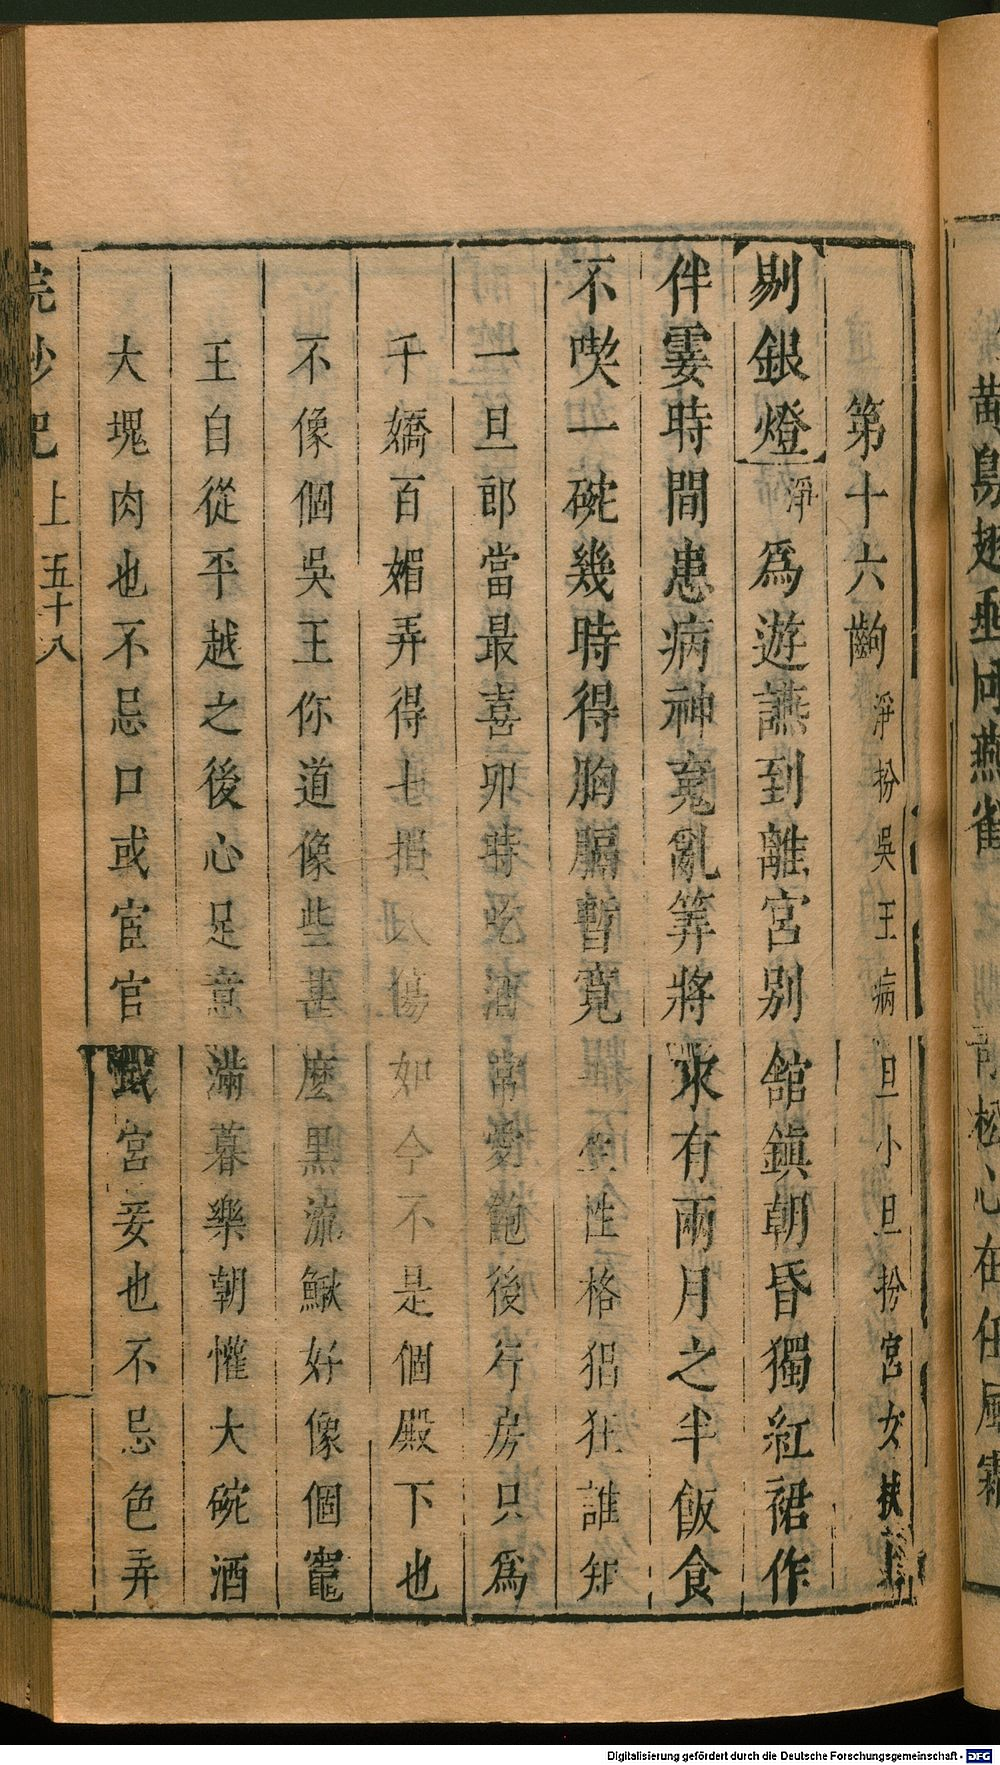 第十六齣 淨扮吳王病 旦小旦扮宮女扶上
剔銀燈 淨 爲遊讌到離宮別舘鎮朝昏獨紅裙作
伴霎時間患病神䰟亂筭將來有兩月之半飯食
不喫一碗幾時得胸膈暫寬 性格猖狂誰知
一旦郎當最喜卯時 酒常愛飽後行房只爲
千嬌百媚弄得七損 傷如今不是個殿下也
不像個吳王你道像些甚麼黑流鰍好像個竈
王自從平越之後心足意滿暮樂朝懽大碗酒
大塊肉也不忌口或宦官或宮妾也不忌色弄
浣紗記 上 五十八
黃鳥 垂 向燕雀
心在任風霜
Digitalisierung gefördert durch die Deutsche Forschungsgemeinschaft - DFG